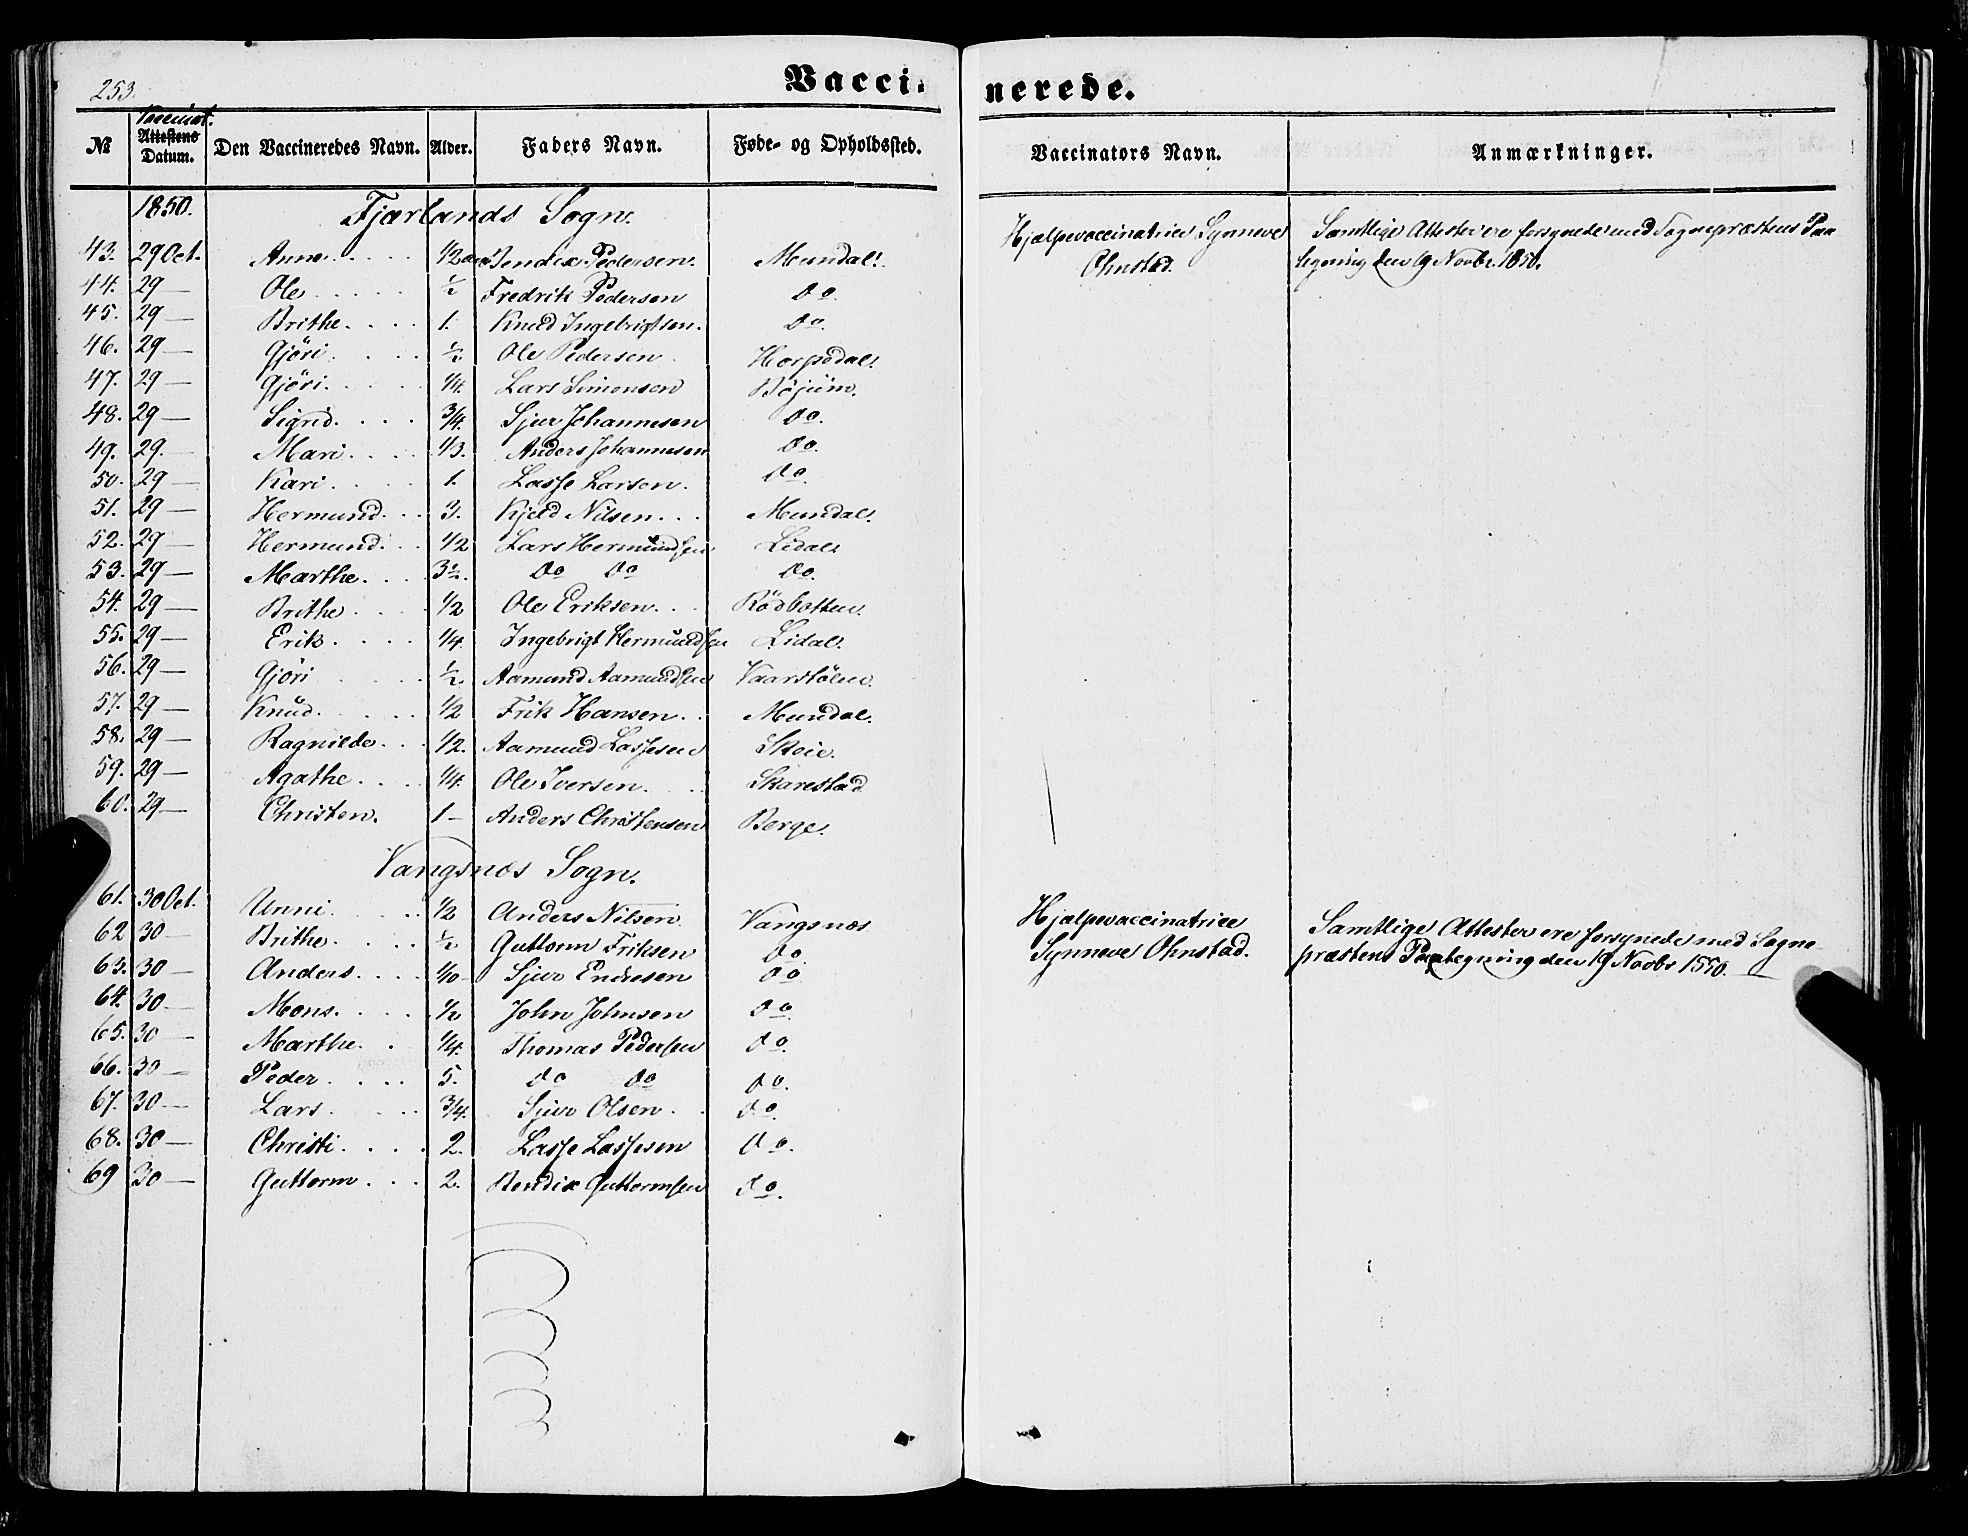 253.
Vaccinerede.
Vaccinat.
№ Attestens Datum. Den Vaccineredes Navn. Alder. Faders Navn. Føde- og Opholdssted. Vaccinators Navn. Anmærkninger.
1850. Fjærlands Sogn.
Hjælpevaccinatrice Synneve Ohnstad.
Samtlige Attester ere forsynede med Sognepræstens Paa
tegning den 19 Novbr. 1850.
43. 29 Oct. Anne 1/2 Bendix Pedersen. Mundal.
44. 29 — Ole 1/2 Fredrik Pedersen do.
45. 29 — Brithe 1. Knud Ingebrigtsen. do.
46. 29 — Gjöri 1/2 Ole Pedersen Horpedal.
47. 29 — Gjöri 1/4. Lars Simonsen Bøjum.
48. 29 — Sigrid 3/4. Sjur Johannesen do.
49. 29. — Mari 1/3. Anders Johannesen do.
50. 29 — Kari 1. Lasse Larsen. do.
51. 29 — Hermund 3. Kjeld Nilsen Mundal.
52. 29 — Hermund 1/2 Lars Hermundsen Lidal.
53. 29 — Marthe 3 1/2. do do do.
54. 29 — Brithe 1/2 Ole Eriksen Rödbotten.
55. 29 — Erik 1/4. Ingebrigt Hermundsen Lidal.
56. 29 — Gjöri 1/2. Aamund Aamundsen Vaarstölen.
57. 29 — Knud 1/2 Erik Hansen Mundal.
58. 29 — Ragnilde 1/2. Aamund Lassesen Skeie.
59. 29 — Agathe 1/4. Ole Iversen Skarestad
60. 29 — Christen. 1 — Anders Christensen Berge.
Vangsnæs Sogn.
61. 30 Oct. Unni 1/2 Anders Nilsen Vangsnæs
62 30 — Brithe 1/2 Guttorm Eriksen do
63. 30 — Anders 1/10 Sjur Endresen do
64. 30 — Mons 1/2 John Johnsen do
65. 30 — Marthe 1/4. Thomas Pedersen do.
66. 30 — Peder 5. do do do.
67. 30 — Lars 3/4. Sjur Olsen do.
68. 30 — Christi 2. Lasse Lassesen do.
69 30 — Guttorm 2. Bendix Guttormsen do.
Hjælpevaccinatrice
Synneve Ohnstad.
Samtlige Attester ere forsynede med Sogne-
præstens Paategning den 19 Novbr 1850.